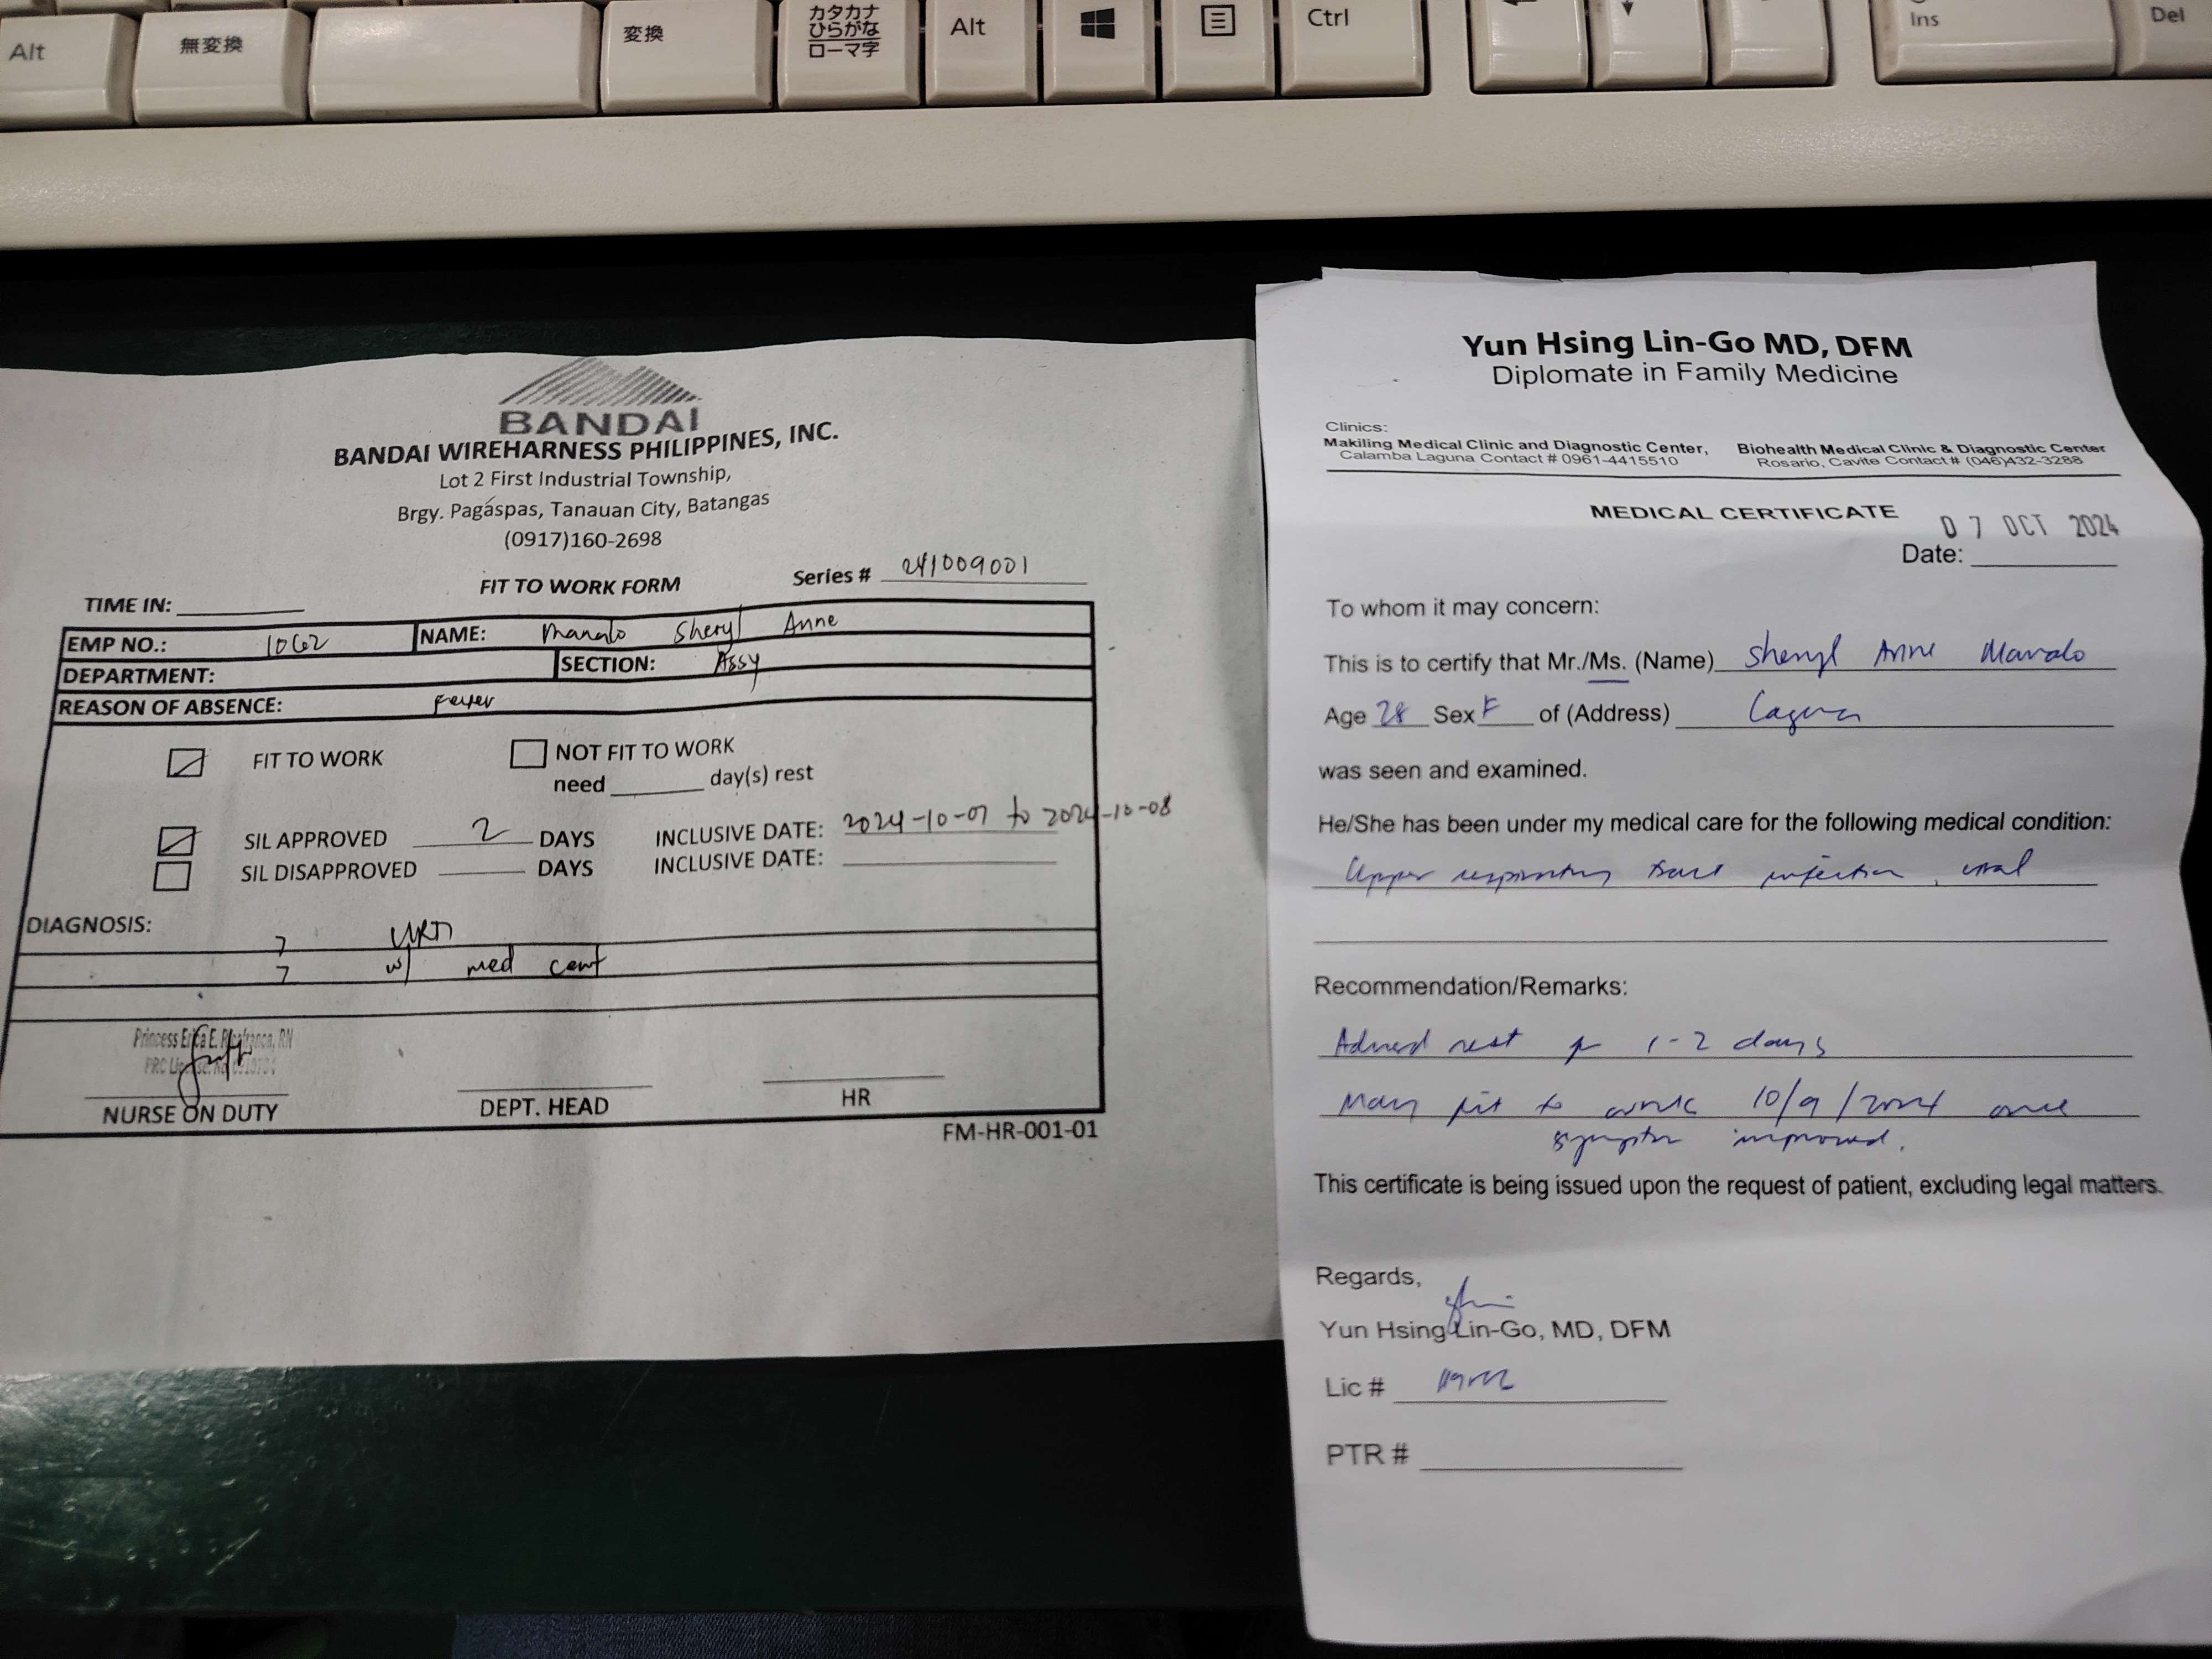 Alt
無変換
変換
カタカナ
ひらがな
ローマ字
Alt
Ctrl
Ins
Del
BANDAI
BANDAI WIREHARNESS PHILIPPINES, INC.
Lot 2 First Industrial Township,
Brgy. Pagaspas, Tanauan City, Batangas
(0917)160-2698
FIT TO WORK FORM
Series # 241009001
TIME IN:
EMP NO.: 1062
NAME: Manalo Sheryl Anne
DEPARTMENT:
SECTION: Assy
REASON OF ABSENCE: Fever
FIT TO WORK
NOT FIT TO WORK
need day(s) rest
SIL APPROVED 2 DAYS INCLUSIVE DATE: 2024-10-07 to 2024-10-08
SIL DISAPPROVED DAYS INCLUSIVE DATE:
DIAGNOSIS:
URTI
w/ med cert
Princess Erica E. RN
PRC License No.
NURSE ON DUTY
DEPT. HEAD
HR
FM-HR-001-01
Yun Hsing Lin-Go MD, DFM
Diplomate in Family Medicine
Clinics:
Makiling Medical Clinic and Diagnostic Center,
Calamba Laguna Contact # 0961-4415510
Biohealth Medical Clinic & Diagnostic Center
Rosario, Cavite Contact # (046)432-3288
MEDICAL CERTIFICATE
07 OCT 2024
Date:
To whom it may concern:
This is to certify that Mr./Ms. (Name) Sheryl Anne Manalo
Age 28 Sex F of (Address) Laguna
was seen and examined.
He/She has been under my medical care for the following medical condition:
Upper respiratory tract infection, viral
Recommendation/Remarks:
Advised rest for 1-2 days
May fit to work 10/9/2024 once
symptom improved.
This certificate is being issued upon the request of patient, excluding legal matters.
Regards,
Yun Hsing Lin-Go, MD, DFM
Lic #
PTR #